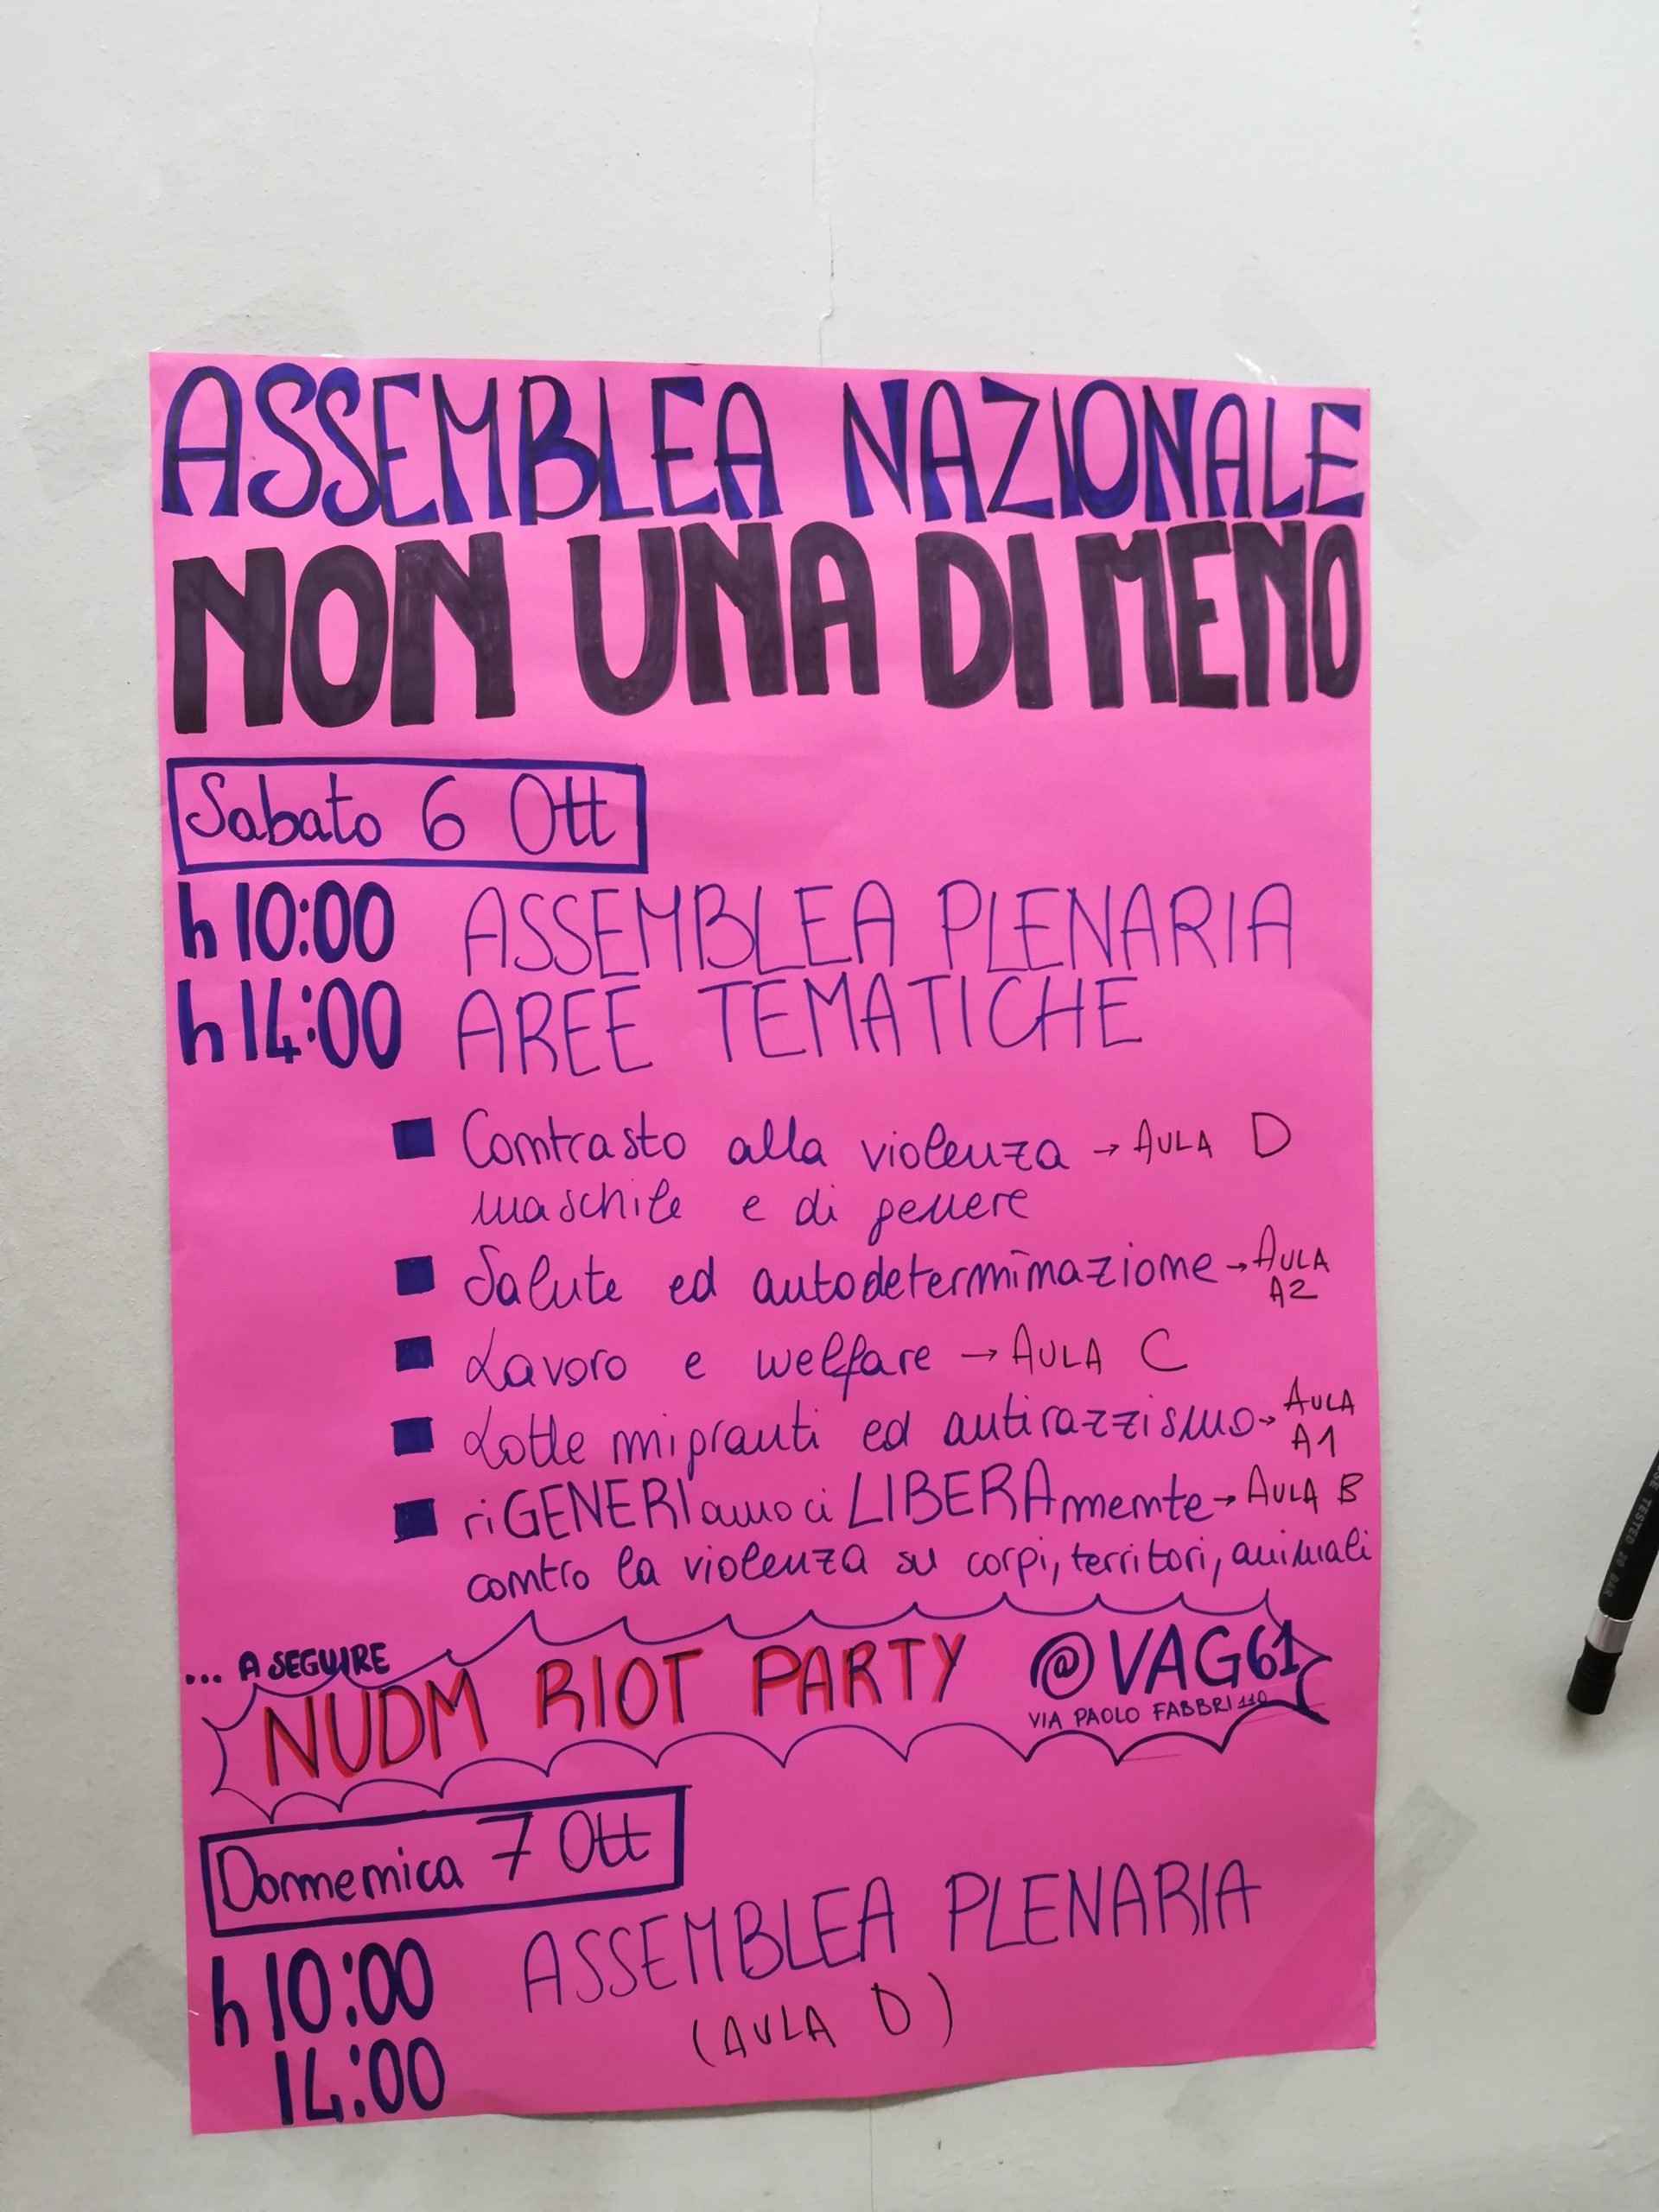 ASSEMBLEA NAZIONALE
NON UNA DI MENO
Sabato 6 Ott
h 10:00 ASSEMBLEA PLENARIA
h 14:00 AREE TEMATICHE
Contrasto alla violenza → AULA D
maschile e di genere
Salute ed autodeterminazione → AULA
A2
Lavoro e welfare → AULA C
Lotte migranti ed antirazzismo → AULA
A1
riGENERIamoci LIBERAmente → AULA B
contro la violenza su corpi, territori, animali
... A SEGUIRE
NUDM RIOT PARTY @VAG61
VIA PAOLO FABBRI 110
Domenica 7 Ott
h 10:00 ASSEMBLEA PLENARIA
14:00 (AULA D)
TESTED 20 BAR